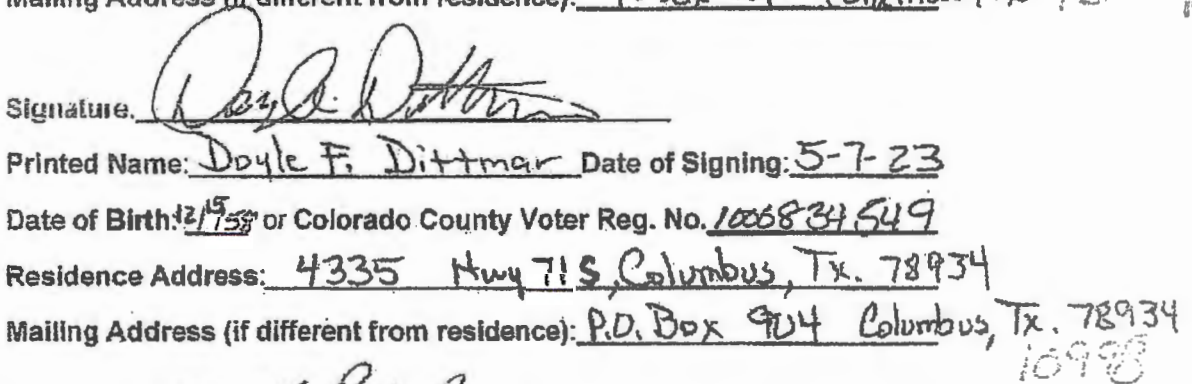 Mailing Address (if different from residence):
Signature.
Printed Name: Doyle F. Dittmar Date of Signing: 5-7-23
Date of Birth: 12/15/58 or Colorado County Voter Reg. No. 1006834549
Residence Address: 4335 Hwy 71 S, Columbus, Tx. 78934
Mailing Address (if different from residence): P.O. Box 904 Columbus, Tx. 78934
10998